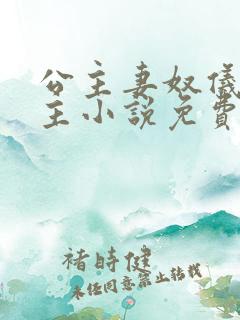 公主妻奴儀
主小說免費
褚時健
未任同意禁止转载